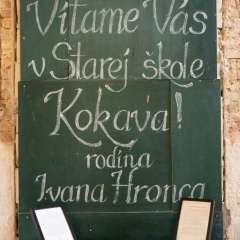 Vítame Vás
v Starej škole
Kokava!
rodina
Ivana Hronca